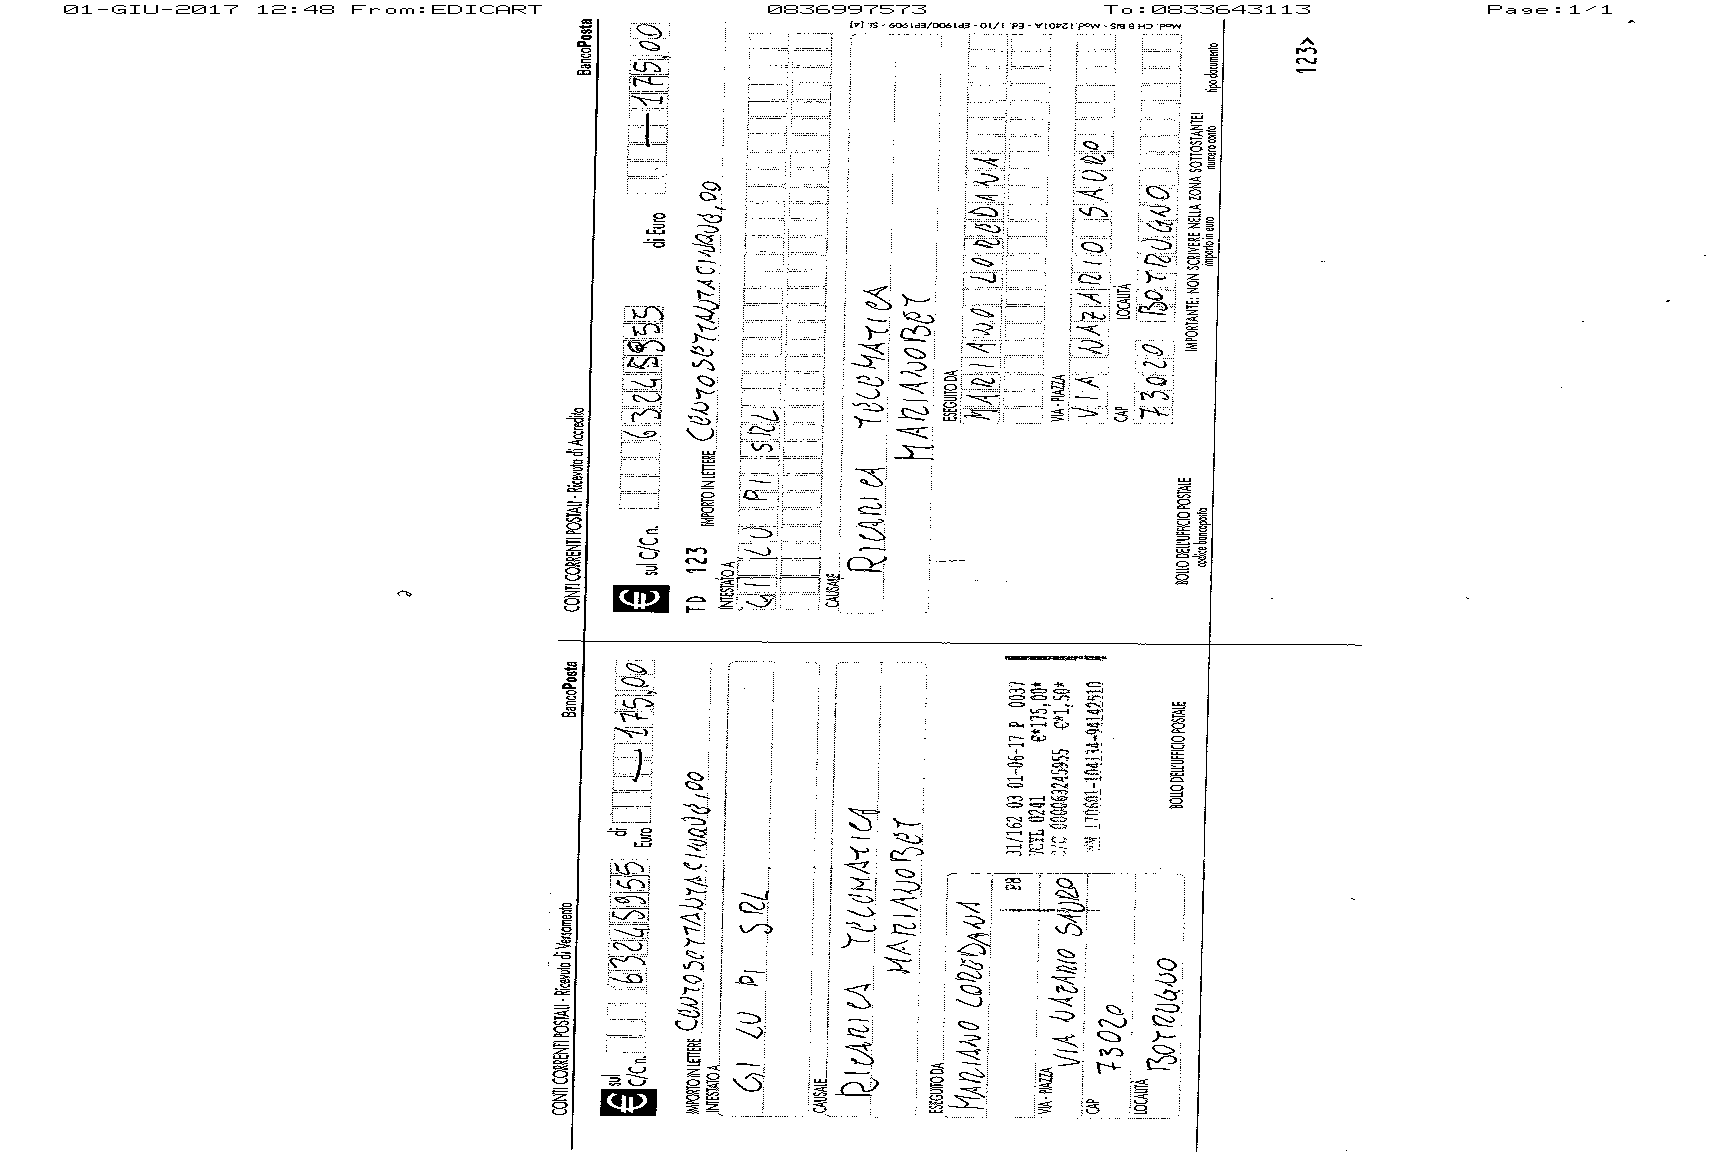 01-GIU-2017 12:48 From:EDICART 0836997573 To:0833643113 Page:1/1
CONTI CORRENTI POSTALI - Ricevuta di Versamento BancoPosta
€ sul C/C n. 63245955 di Euro 175,00
IMPORTO IN LETTERE CENTOSETTANTACINQUE,00
INTESTATO A
GI LU PI SRL
CAUSALE
RICARICA TELEMATICA
MARIANOBET
ESEGUITO DA
MARIANO LOREDANA
VIA - PIAZZA
VIA NAZARIO SAURO
CAP
73020
LOCALITÀ
BOTRUGNO
31/162 03 01-06-17 P 0037
0241 €*175,00*
000063245955 €*1,50*
170601-104134-94142510
BOLLO DELL'UFFICIO POSTALE
CONTI CORRENTI POSTALI - Ricevuta di Accredito BancoPosta
€ sul C/C n. 63245955 di Euro 175,00
TD 123 IMPORTO IN LETTERE CENTOSETTANTACINQUE,00
INTESTATO A
GI LU PI SRL
CAUSALE
RICARICA TELEMATICA
MARIANOBET
ESEGUITO DA
MARIANO LOREDANA
VIA - PIAZZA
VIA NAZARIO SAURO
CAP LOCALITÀ
73020 BOTRUGNO
BOLLO DELL'UFFICIO POSTALE
codice bancoposta
IMPORTANTE: NON SCRIVERE NELLA ZONA SOTTOSTANTE!
importo in euro numero conto tipo documento
123>